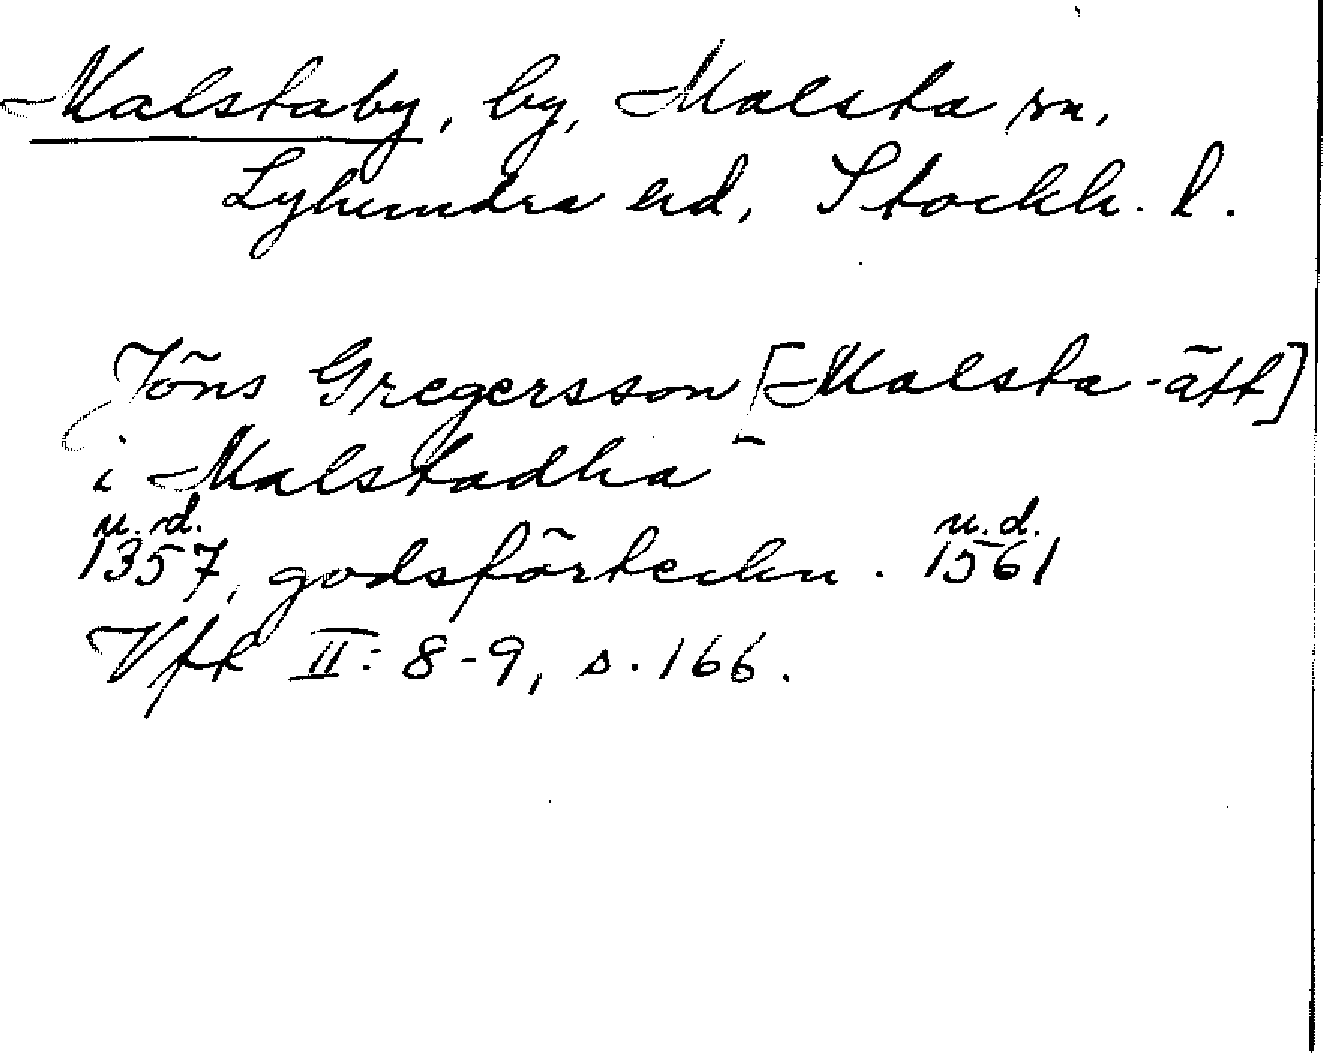 Malstaby, by, Malsta sn,
Lyhundra hd, Stockh. l.
Jöns Gregersson [Malsta-ätt]
i Malstadha
u.d. u.d.
1357, godsförteckn. 1561
Vfk II: 8-9, s. 166.